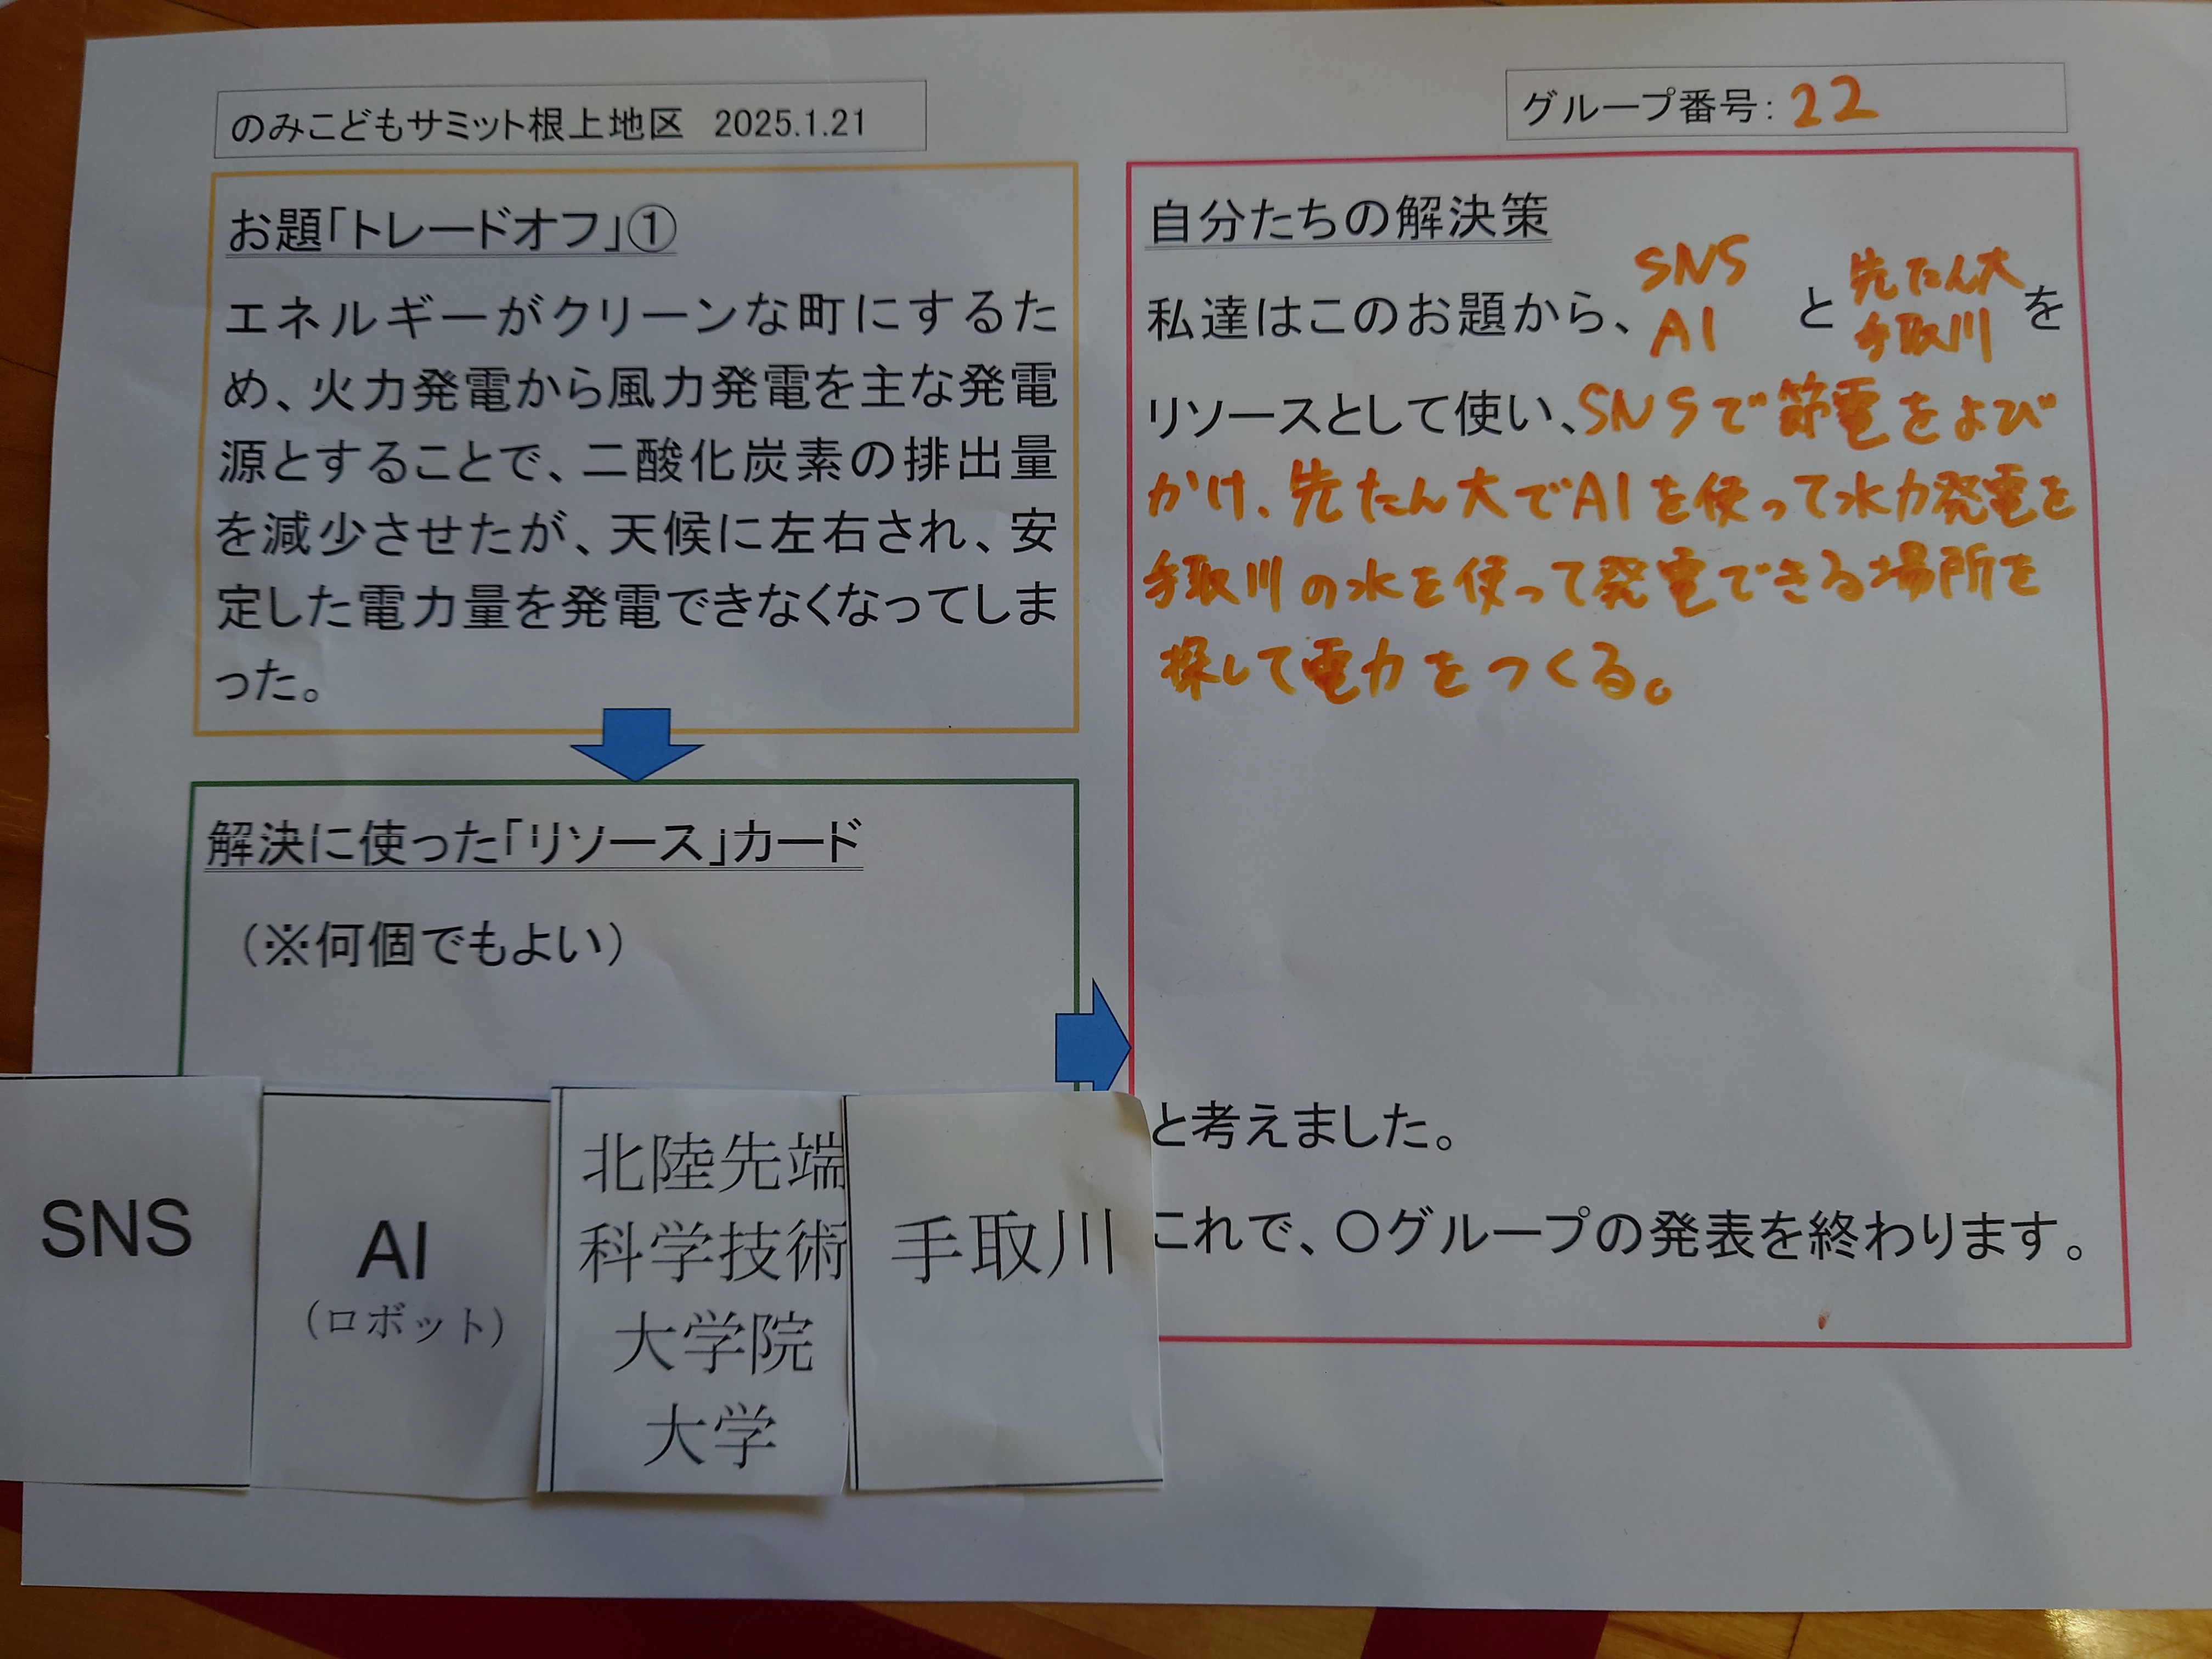 のみこどもサミット根上地区 2025.1.21
グループ番号: 22
お題「トレードオフ」①
エネルギーがクリーンな町にするた
め、火力発電から風力発電を主な発電
源とすることで、二酸化炭素の排出量
を減少させたが、天候に左右され、安
定した電力量を発電できなくなってしま
った。
解決に使った「リソース」カード
(※何個でもよい)
SNS
AI
(ロボット)
北陸先端
科学技術
大学院
大学
手取川
自分たちの解決策
SNS 先たん大
私達はこのお題から、AI と手取川を
リソースとして使い、SNSで節電をよび
かけ、先たん大でAIを使って水力発電を
手取川の水を使って発電できる場所を
探して電力をつくる。
と考えました。
これで、〇グループの発表を終わります。